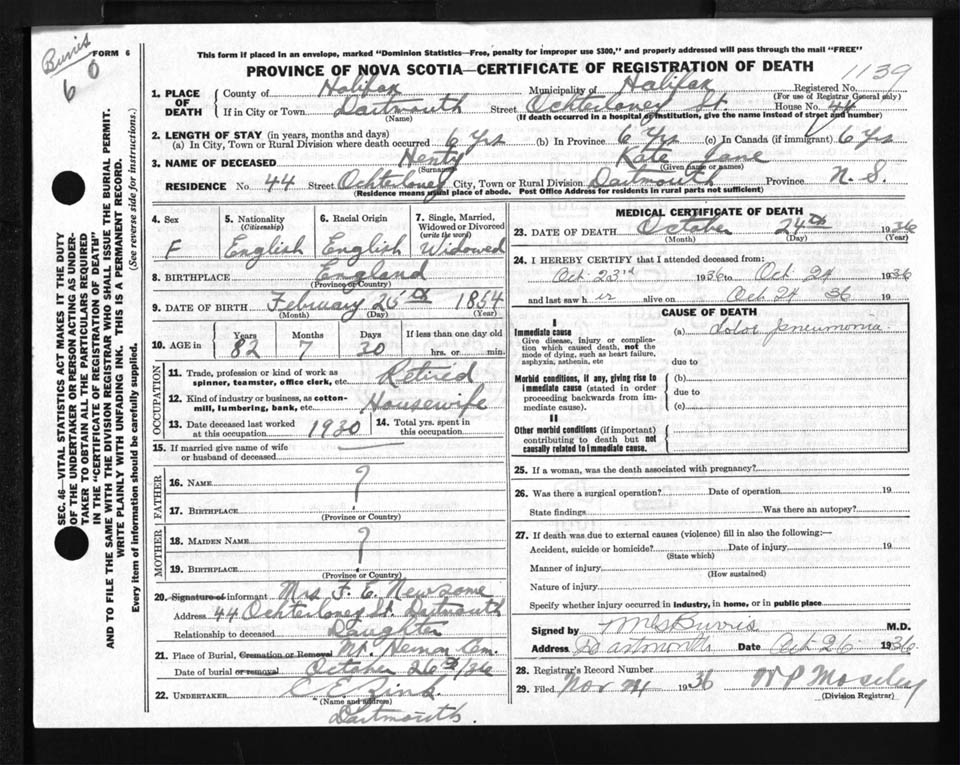 Burris
6 0
FORM 6
This form if placed in an envelope, marked "Dominion Statistics—Free, penalty for improper use $300," and properly addressed will pass through the mail "FREE"
PROVINCE OF NOVA SCOTIA—CERTIFICATE OF REGISTRATION OF DEATH
1139
1. PLACE OF DEATH
County of Halifax Municipality of Halifax Registered No.
(For use of Registrar General only)
If in City or Town Dartmouth Street Ochterloney St. House No. 44
(Name) (If death occurred in a hospital or institution, give the name instead of street and number)
2. LENGTH OF STAY (in years, months and days)
(a) In City, Town or Rural Division where death occurred 6 Yrs (b) In Province 6 Yrs (c) In Canada (if immigrant) 6 Yrs
3. NAME OF DECEASED Henty Kate Jane
(Surname) (Given name or names)
RESIDENCE No. 44 Street Ochterloney City, Town or Rural Division Dartmouth Province N. S.
(Residence means usual place of abode. Post Office Address for residents in rural parts not sufficient)
4. Sex 5. Nationality 6. Racial Origin 7. Single, Married, Widowed or Divorced
(Citizenship) (write the word)
F English English Widowed
8. BIRTHPLACE England
(Province or Country)
9. DATE OF BIRTH February 25th 1854
(Month) (Day) (Year)
10. AGE in Years Months Days If less than one day old
82 7 30 hrs. or min.
OCCUPATION
11. Trade, profession or kind of work as spinner, teamster, office clerk, etc. Retired
12. Kind of industry or business, as cotton-mill, lumbering, bank, etc. Housewife
13. Date deceased last worked at this occupation 1930 14. Total yrs. spent in this occupation
15. If married give name of wife or husband of deceased —
FATHER
16. NAME ?
17. BIRTHPLACE
(Province or Country)
MOTHER
18. MAIDEN NAME ?
19. BIRTHPLACE
(Province or Country)
20. Signature of informant Mrs F. E. Newsome
Address 44 Ochterloney St. Dartmouth
Relationship to deceased Daughter
21. Place of Burial, Cremation or Removal Mt. Hermon Cem.
Date of burial or removal October 26th/36
22. UNDERTAKER E. E. Zink
(Name and address)
Dartmouth.
MEDICAL CERTIFICATE OF DEATH
23. DATE OF DEATH October 24th 1936
(Month) (Day) (Year)
24. I HEREBY CERTIFY that I attended deceased from:
Oct 23rd 1936 to Oct 24 1936
and last saw her alive on Oct 24 36 19
CAUSE OF DEATH
I
Immediate cause (a) Lobar pneumonia
Give disease, injury or complication which caused death, not the mode of dying, such as heart failure, asphyxia, asthenia, etc
due to
Morbid conditions, if any, giving rise to immediate cause (stated in order proceeding backwards from immediate cause).
(b)
due to
(c)
II
Other morbid conditions (if important) contributing to death but not causally related to immediate cause.
25. If a woman, was the death associated with pregnancy?
26. Was there a surgical operation? Date of operation 19
State findings Was there an autopsy?
27. If death was due to external causes (violence) fill in also the following:—
Accident, suicide or homicide? Date of injury 19
(State which)
Manner of injury
(How sustained)
Nature of injury
Specify whether injury occurred in industry, in home, or in public place
Signed by Burris M.D.
Address Dartmouth Date Oct 26 1936
28. Registrar's Record Number
29. Filed Nov 1936 W P Moseley
(Division Registrar)
SEC. 46—VITAL STATISTICS ACT MAKES IT THE DUTY
OF THE UNDERTAKER OR PERSON ACTING AS UNDER-
TAKER TO OBTAIN ALL THE PARTICULARS REQUIRED
IN THE "CERTIFICATE OF REGISTRATION OF DEATH"
AND TO FILE THE SAME WITH THE DIVISION REGISTRAR WHO SHALL ISSUE THE BURIAL PERMIT.
WRITE PLAINLY WITH UNFADING INK. THIS IS A PERMANENT RECORD.
Every item of information should be carefully supplied. (See reverse side for instructions.)